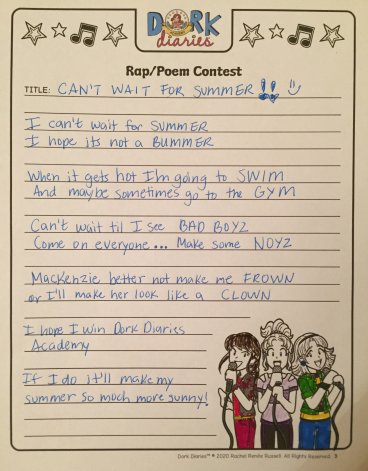 DORK
diaries
Rap/Poem Contest
TITLE: CAN'T WAIT FOR SUMMER!!
I can't wait for SUMMER
I hope its not a BUMMER
When it gets hot I'm going to SWIM
And maybe sometimes go to the GYM
Can't wait til I see BAD BOYZ
Come on everyone... Make some NOYZ
Mackenzie better not make me FROWN
or I'll make her look like a CLOWN
I hope I win Dork Diaries
Academy
If I do it'll make my
summer so much more sunny!
Dork Diaries™ © 2020 Rachel Renée Russell. All Rights Reserved. 3